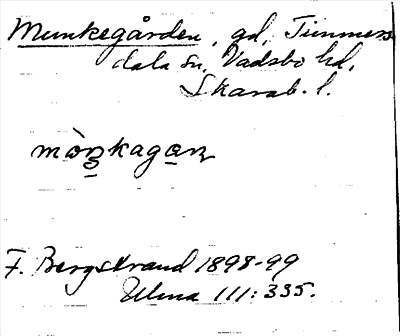 Munkegården, gd, Timmers
dala sn, Vadsbo hd,
Skarab. l.
mòŋkagaɳ
F. Bergstrand 1898-99
Ulma 111:335.